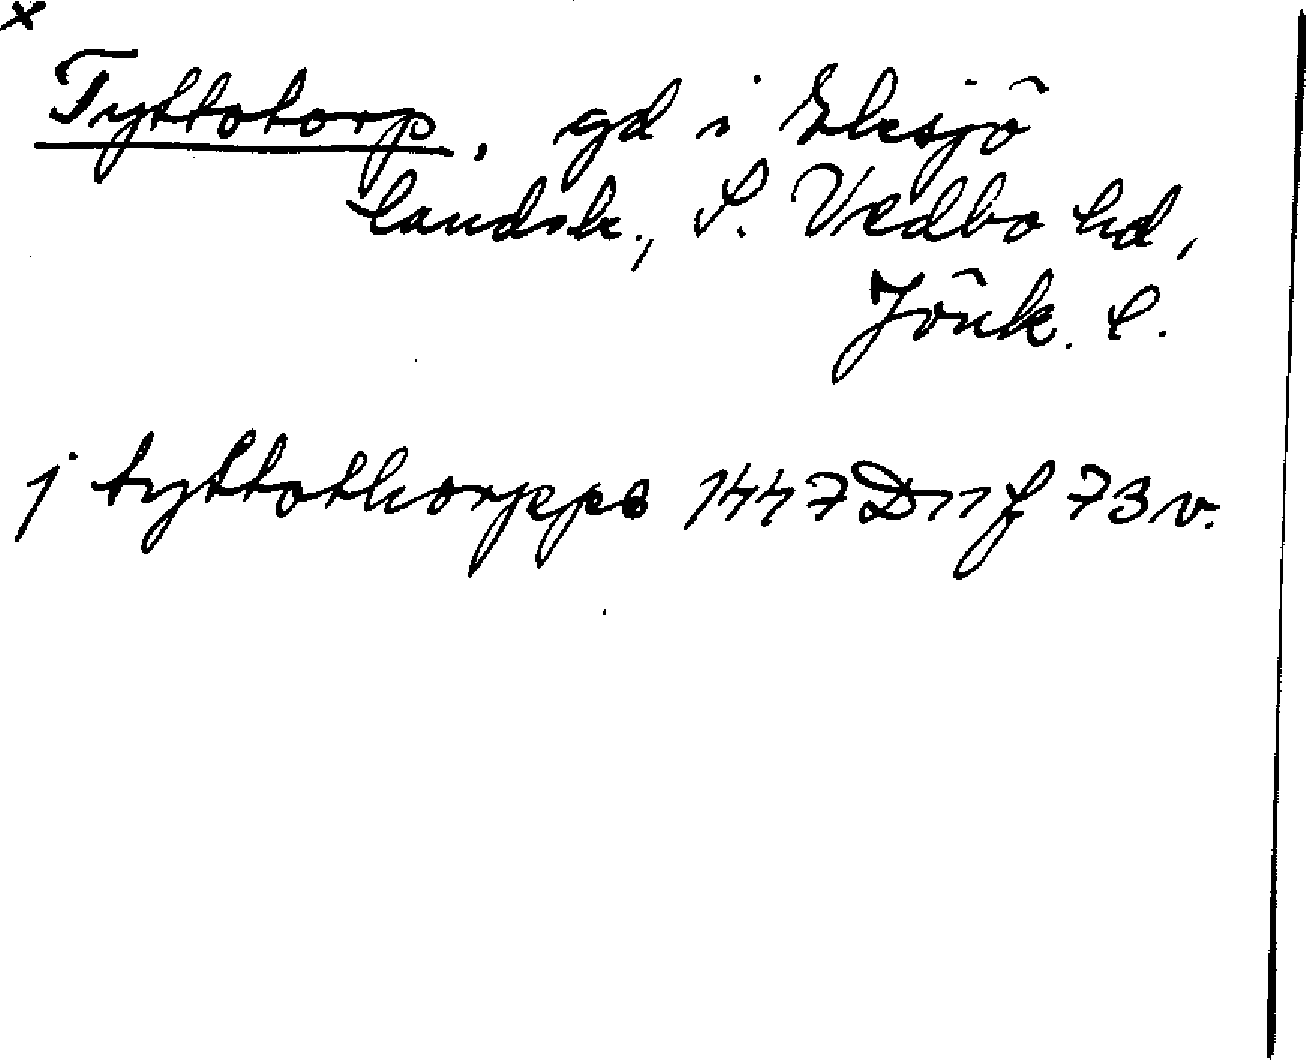 x
Tyttotorp, gd i Eksjö
landsk., S. Vedbo hd,
Jönk. l.
j tyttothorppe 1447 D 11 f 73 v.